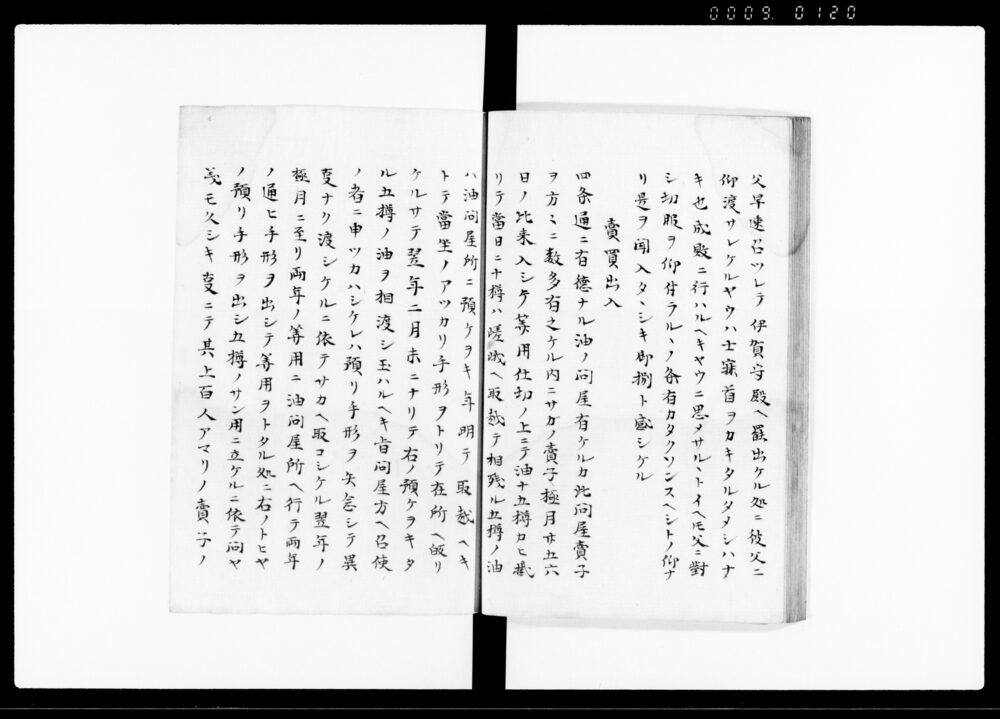 0009. 0120
父早速召ツレテ伊賀守殿ヘ罷出ケル処ニ彼父ニ
仰渡サレケルヤウハ士寐首ヲカキタルタメシハナ
キ也成敗ニ行ハルヘキヤウニ思メサルヽトイヘ𪜈父ニ對
シ切服ヲ仰付ラルヽノ条有カタクソンスヘシトノ仰ナ
リ是ヲ聞入タヽシキ御捌ト感シケル
賣買出入
四条通ニ有德ナル油ノ問屋有ケルカ此問屋賣子
ヲ方〻ニ数多有之ケル内ニサガノ賣子極月廿五六
日ノ比来入シケ筭用仕切ノ上ニテ油十五樽カヒ
リテ當日ニ十樽ハ嵯峨ヘ取越テ相残ル五樽ノ油
ハ油問屋所ニ預ケヲキ年明テ取越ヘキ
トテ當坐ノアツカリ手形ヲトリテ在所ヘ皈リ
ケルサテ翌年二月末ニナリテ右ノ預ケヲキタ
ル五樽ノ油ヲ相渡シ玉ハルヘキ旨問屋方ヘ召使
ノ者ニ申ツカハシケレハ預リ手形ヲ失念シテ異
夏ナク渡シケルニ依テサカヘ取コシケル翌年ノ
極月ニ至リ両年ノ筭用ニ油問屋所ヘ行テ両年
ノ通ヒ手形ヲ出シテ筭用ヲトタル処ニ右ノトヒヤ
ノ預リ手形ヲ出シ五樽ノサン用ニ立ケルニ依テ問ヤ
モ久シキ夏ニテ其上百人アマリノ賣子ノ